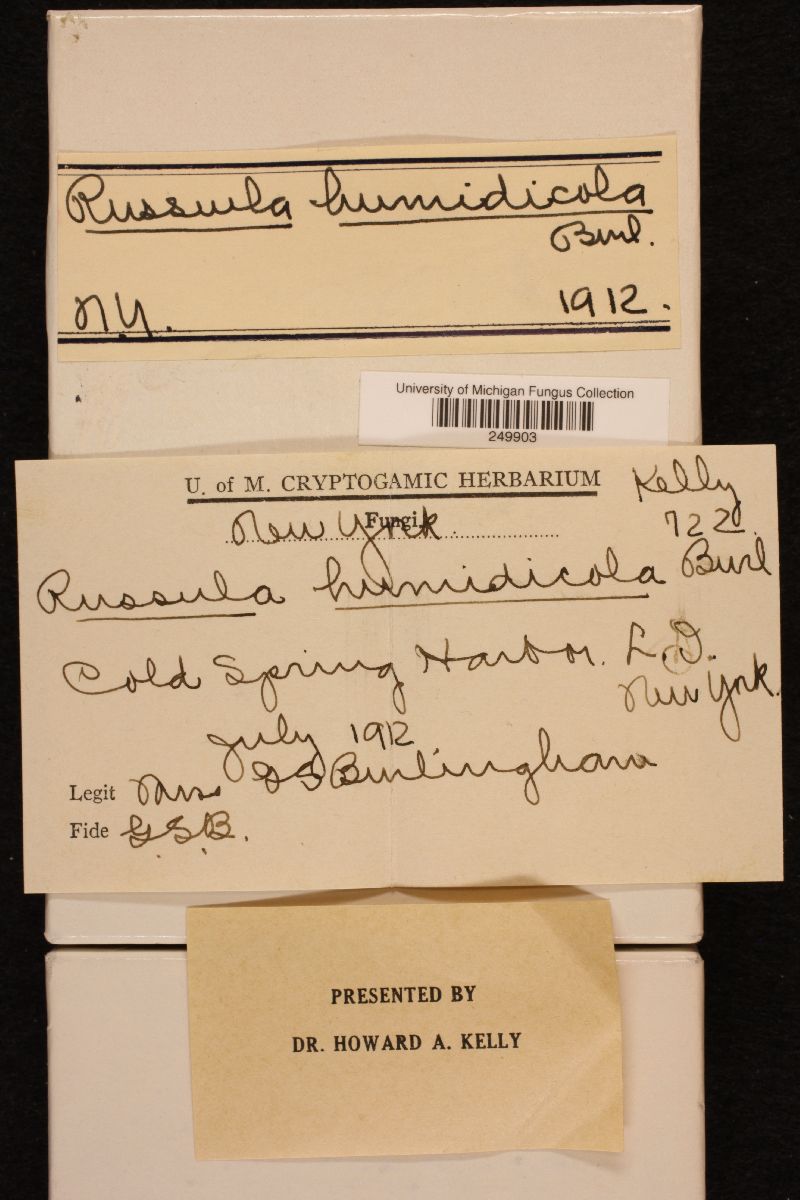 Russula humidicola
Burl.
N.Y. 1912.
University of Michigan Fungus Collection
249903
U. of M. CRYPTOGAMIC HERBARIUM
Kelly
722
Fungi,
New York.
Russula humidicola Burl
Cold Spring Harbor. L.I.
New York.
July 1912
Legit Mrs G S Burlingham
Fide G.S.B.
PRESENTED BY
DR. HOWARD A. KELLY